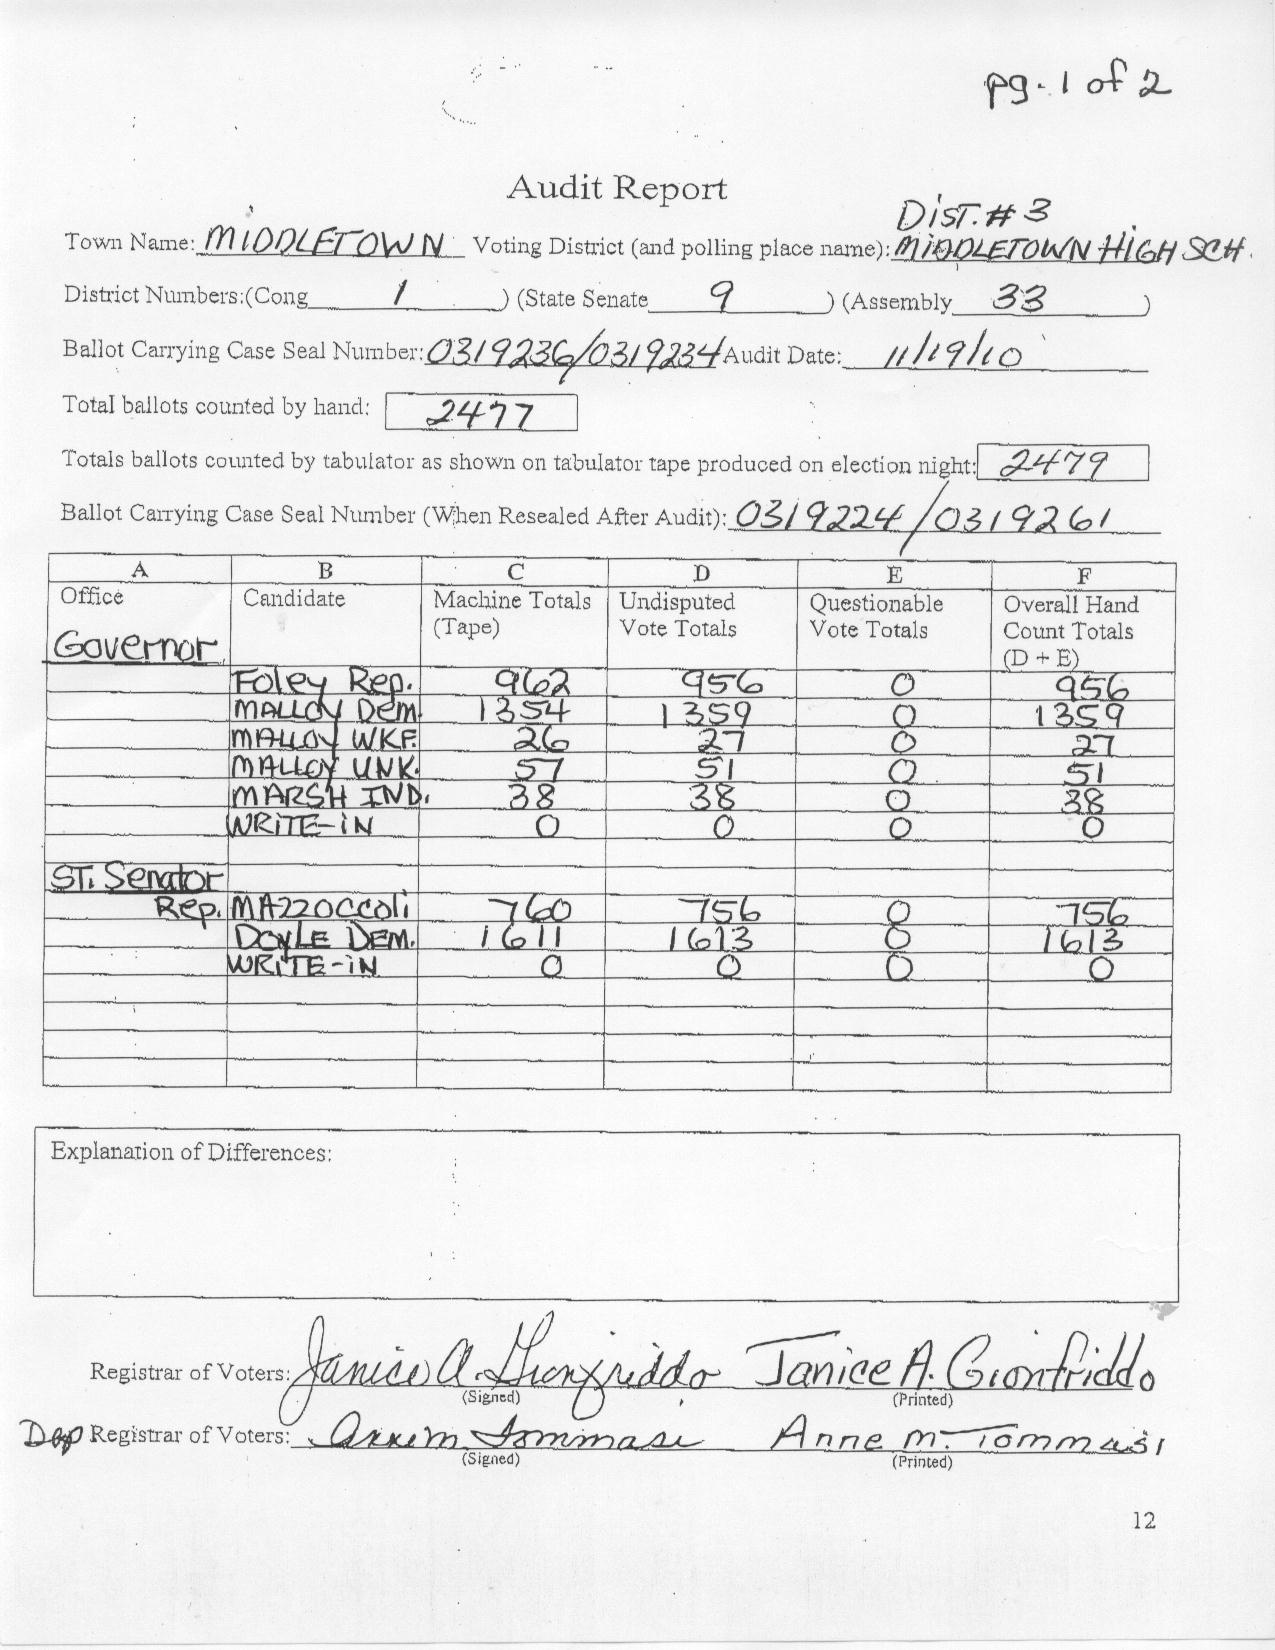 pg. 1 of 2
Audit Report
DiST. # 3
Town Name: MIDDLETOWN Voting District (and polling place name): MiDDLETOWN HIGH SCH.
District Numbers:(Cong 1 ) (State Senate 9 ) (Assembly 33 )
Ballot Carrying Case Seal Number: 0319236/0319234 Audit Date: 11/19/10
Total ballots counted by hand: 2477
Totals ballots counted by tabulator as shown on tabulator tape produced on election night: 2479
Ballot Carrying Case Seal Number (When Resealed After Audit): 0319224/0319261
A B C D E F
Office Candidate Machine Totals Undisputed Questionable Overall Hand
(Tape) Vote Totals Vote Totals Count Totals
Governor (D + E)
Foley Rep. 962 956 0 956
MALLOY DEM 1354 1359 0 1359
MALLOY WKF. 26 27 0 27
MALLOY UNK. 57 51 0 51
MARSH IND. 38 38 0 38
WRiTE-iN 0 0 0 0
ST. Senator
Rep. MAZZOCCOli 760 756 0 756
DOYLE DEM. 1611 1613 0 1613
WRiTE-iN 0 0 0 0
Explanation of Differences:
Registrar of Voters: Janice A. Gionfriddo Janice A. Gionfriddo
(Signed) (Printed)
Dep Registrar of Voters: Anne M Tommasi Anne M. Tommasi
(Signed) (Printed)
12